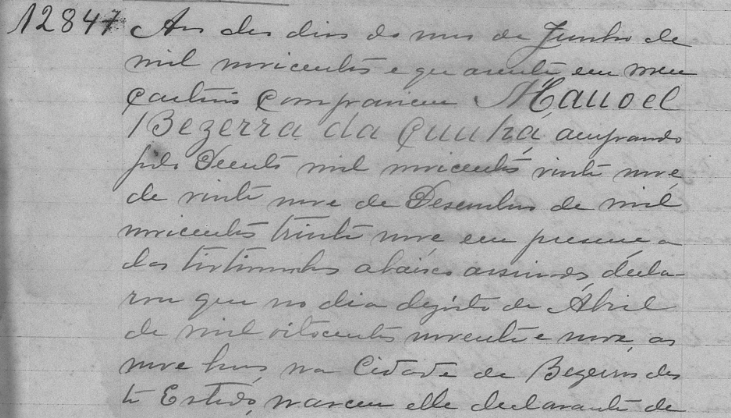 12847 Aos des dias do mes de Junho de
mil novicentos e quarenta em meu
cartorio compareceu Manoel
Bezerra da Cunha, amparado
pelo Decreto mil novicentos vinte nove
de vinte nove de Desembro de mil
novicentos trinta nove em presença
das testimunhas abaixo assinadas, decla-
rou que no dia desoito de Abril
de mil oitocentos noventa e nove, as
nove horas na Cidade de Bezerros des
te Estado, nasceu elle declarante de